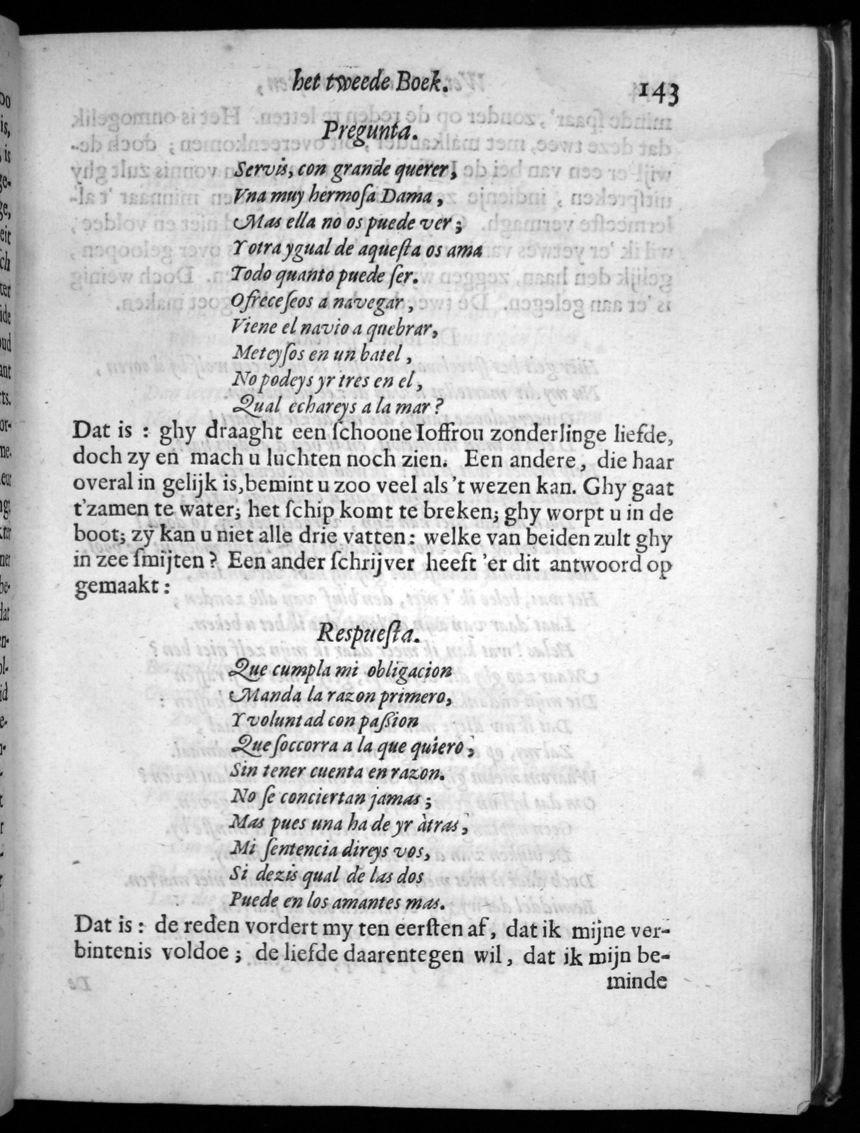 het tweede Boek. 143
Pregunta.
Servis, con grande querer,
Vna muy hermoſa Dama,
Mas ella no os puede ver;
Y otra ygual de aqueſta os ama
Todo quanto puede ſer.
Ofreceſeos a navegar,
Viene el navio a quebrar,
Meteyſos en un batel,
No podeys yr tres en el,
Qual echareys a la mar?
Dat is: ghy draaght een ſchoone Ioffrou zonderlinge liefde,
doch zy en mach u luchten noch zien. Een andere, die haar
overal in gelijk is, bemint u zoo veel als 't wezen kan. Ghy gaat
t'zamen te water; het ſchip komt te breken; ghy worpt u in de
boot; zy kan u niet alle drie vatten: welke van beiden zult ghy
in zee ſmijten? Een ander ſchrijver heeft 'er dit antwoord op
gemaakt:
Respueſta.
Que cumpla mi obligacion
Manda la razon primero,
Y voluntad con paſsion
Que ſoccorra a la que quiero,
Sin tener cuenta en razon.
No ſe conciertan jamas;
Mas pues una ha de yr àtras,
Mi ſentencia direys vos,
Si dezis qual de las dos
Puede en los amantes mas.
Dat is: de reden vordert my ten eerſten af, dat ik mijne ver-
bintenis voldoe; de liefde daarentegen wil, dat ik mijn be-
minde